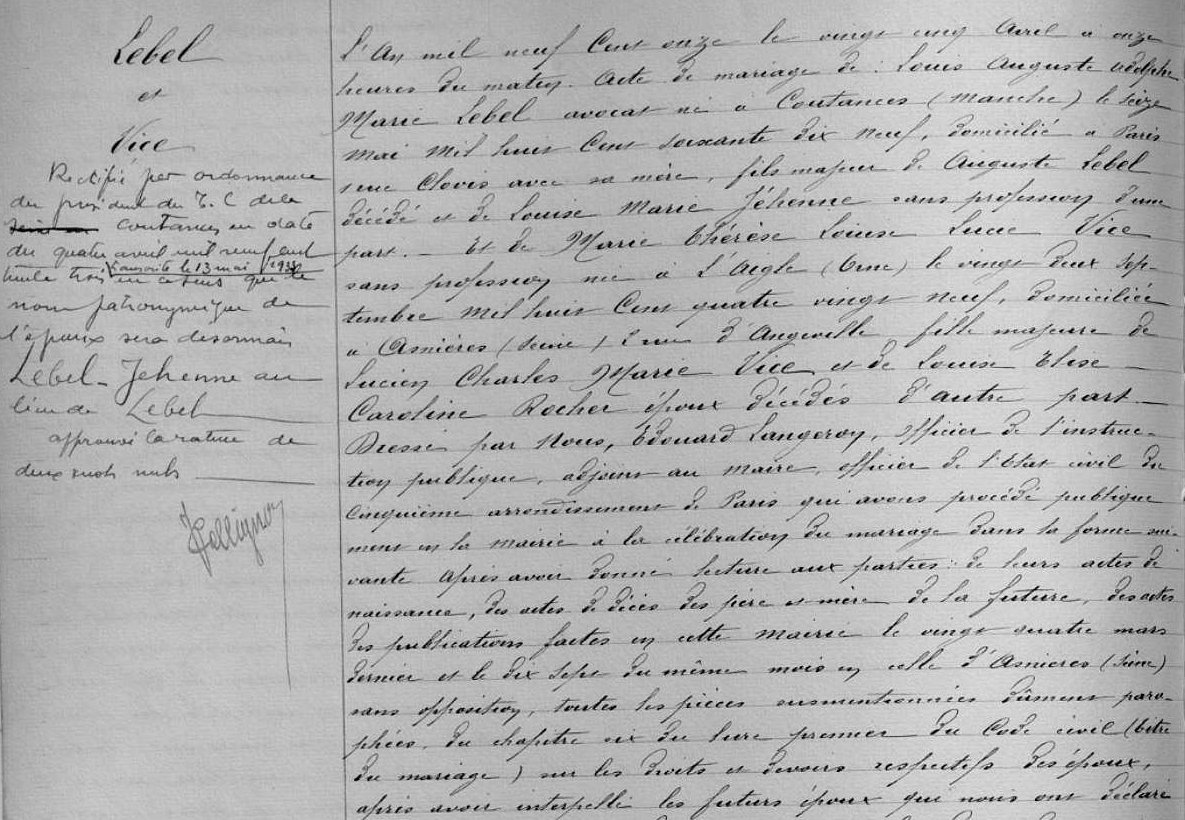 Lebel
et
Vice
Rectifié par ordonnance
du président du T. C de la
Coutances en date
du quatre avril mil neuf cent
trente trois
transcrite le 13 mai
en ce sens que le
nom patronymique de
l'époux sera désormais
Lebel-Jehenne au
lieu de Lebel
approuvé la rature de
deux mots nuls
L'An mil neuf Cent onze le vingt cinq Avril à onze
heures du matin. Acte de mariage de : Louis Auguste Adolphe
Marie Lebel avocat né à Coutances (Manche) le seize
Mai Mil huit Cent soixante dix neuf, domicilié à Paris
rue Clovis avec sa mère, fils majeur de Auguste Lebel
décédé et de Louise Marie Jéhenne sans profession d'une
part. – Et de Marie Thérèse Louise Lucie Vice
sans profession née à L'Aigle (Orne) le vingt deux sep-
tembre Mil huit Cent quatre vingt neuf, domiciliée
à Asnières (Seine) 2 rue d'Angeville fille majeure de
Lucien Charles Marie Vice et de Louise Elise
Caroline Rocher époux décédés d'autre part. –
Dressé par Nous, Édouard Langeron, officier de l'instruc-
tion publique, adjoint au maire, officier de l'Etat civil du
Cinquième arrondissement de Paris qui avons procédé publique
ment en la mairie à la célébration du mariage dans la forme sui-
vante Après avoir donné lecture aux parties : de leurs actes de
naissance, des actes de décès des père et mère de la future, des actes
des publications faites en cette Mairie le vingt quatre mars
dernier et le dix sept du même mois en celle d'Asnières (Seine)
sans opposition, toutes les pièces susmentionnées dûment para-
phées, du chapitre six du livre premier du Code civil (titre
du mariage) sur les droits et devoirs respectifs des époux,
après avoir interpellé les futurs époux qui nous ont déclaré